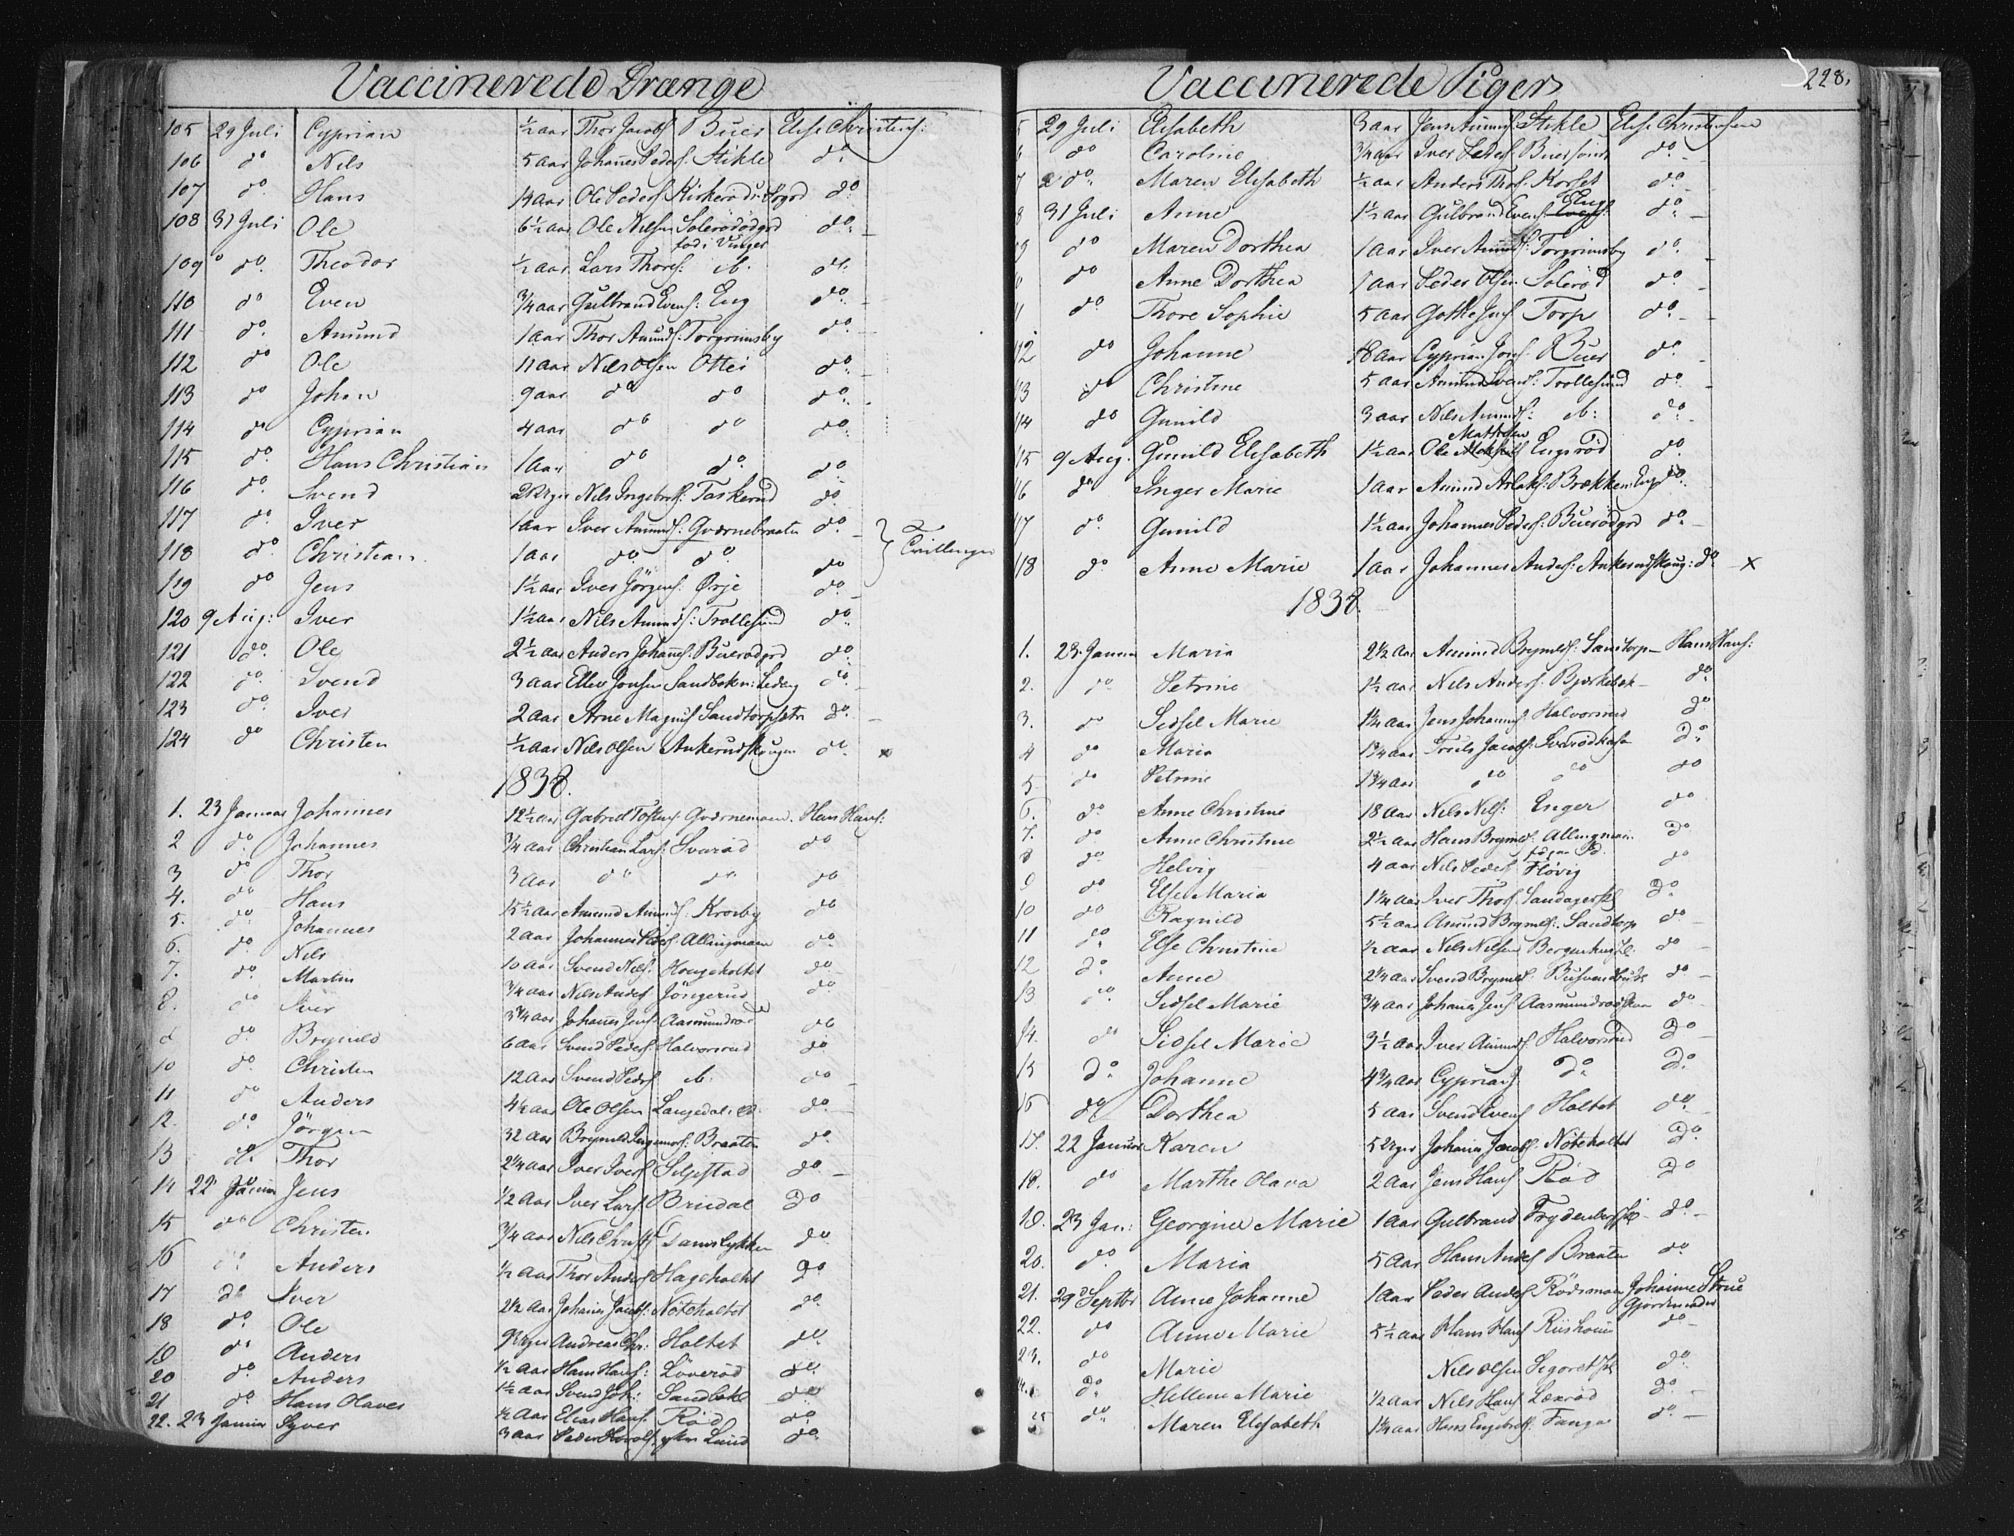 Vaccinerede Drænge
105 29 Juli Cyprian ½ aar Thor Jacobs: Buer Elise Christens:
106 do Nils 5 aar Johannes Peders: Stikle do
107 do Hans ¼ aar Ole Peders: Kirkerød i Sogd do
108 31 Juli Ole 6½ aar Ole Nilsen Solerødsgrd do
fød i Vinger
109 do Theodor ½ aar Lars Thores: do
110 do Even ¾ aar Gulbrand Evens: Eng do
111 do Amund 1 aar Thor Amunds: Torgrimsby do
112 do Ole 11 aar Nils Olsen Ottei do
113 do Johan 9 aar do do do
114 do Cyprian 4 aar do do do
115 do Hans Christian 1 Aar do do do
116 do Svend Nils Ingebrets: Taskerud do
117 do Iver 1 aar Iver Amunds: Qværnebraaten do
Tvillinger
118 do Christian 1 aar do do do
119 do Jens 1½ aar Iver Jörgens: Ørje do
120 9 Aug: Iver 1½ aar Nils Amunds: Trollesund do
121 do Ole 2½ aar Anders Johans: Buerødgrd do
122 do Svend 3 aar Ellev Jonsen Sandbæk do
123 do Iver 2 aar Arne Magnus: Sandtorp do
124 do Christen ½ aar Nils Olsen Ankerudskougen do x
1838.
1. 23 Januar Johannes 12½ aar Gabriel Qværnemoen Hans Hans:
2 do Johannes ¾ aar Christian Lars: Svarød do
3 do Thor 3 Aar do do do
4. do Hans 15½ aar Amund Amunds: Krosby do
5. do Johannes 2 aar Johannes Allingmoen do
6. do Nils 10 aar Svend Nils: Hougeholtet do
7. do Martin ¾ aar Nils Anders: Jöngerud do
8. do Iver 3¾ aar Johannes Jens: Aasmundrød do
do Brynild 6 aar Svend Peders: Halvorsrud do
10 do Christen 12 Aar Svend Peders: do
11 do Anders 4½ aar Ole Olsen Langedal do
12. do Jörgen 32 aar Brynild Ingemors: Braaten do
13 do Thor 2¼ aar Iver Ivers: Seljestad do
14 22 Januar Jens ½ Aar Iver Lars: Bruedal do
15 do Christen ¾ aar Nils Chrst: Damslykken do
16 do Anders ½ aar Thor Anders: Hageholtet do
17 do Iver 2½ aar Johanis Jacobs: Nøteholtet do
18 do Ole Andreas Chr: Holtet do
19 do Anders ½ aar Hans Hans: Löverød do
20 do Anders 1½ aar Svend Joh: Sandbæk do
21 do Hans Olaves ½ aar Elias Hans: Rød do
22. 23 Januar Syver 3 aar Peder Lund do
Vaccinerede Piger 228.
5 29 Juli Elisabeth 3 aar Jens Amunds: Stikle Elise Christensen
6 do Caroline ¾ aar Iver Peders: Buer do
7 do Maren Elisabeth ½ aar Anders Thos: Korset do
8 31 Juli Anne 1½ aar Gulbrand Evens: Eng do
9 do Maren Dorthea 1 aar Iver Amunds: Torgrimsby do
do Anne Dorthea 1 aar Peder Olsen Solerød do
11 do Thore Sophie 5 aar Gothe Jens: Torp do
12 do Johanne 18 aar Cyprian Jons: Buer do
13 do Christine 5 aar Amund Svens: Trollesund do
14 do Gunild 3 aar Nils Amunds: do
15 9 Aug. Gunild Elisabeth 1½ aar Ole Mathisen Engsrød do
16 do Inger Marie 1 aar Amund Aslaks: Brækken Eng do
17 do Gunild 1½ aar Johannes Peders: Buerødgrd do
18 do Anne Marie 1 aar Johannes Anders: Ankerudskoug: do x
1838.
1. 23 Januar Maria 2½ aar Amund Brynilds: Sandtorp Hans Hans:
2. do Petrine 1½ aar Nils Anders: Bjørkebæk do
3. do Sidsel Marie 1¼ aar Jens Johannes: Halvorsrud do
4 do Maria 1¾ aar Truels Jacobs: do
5 do Petrine 1¾ aar do do do
6. do Anne Christine 18 aar Nils Nils: Enger do
7. do Anne Christine 2½ aar Hans Brynilds: Allingmoen do
8 do Helvig 4 aar Nils Peders: Fløvig do
9 do Else Maria 1¼ aar Iver Thors: Sandager do
10 do Ragnild 5½ aar Amund Brynilds: Sandtorp do
11 do Else Christine ½ aar Nils Nilsen do
12 do Anne 2¼ aar Svend Brynilds: do
13 do Sidsel Marie ¾ aar Johanis Jens: Aasmundrød do
14. do Sidsel Marie 3½ aar Iver Amunds: Halvorsrud do
15 do Johanne 4¾ aar Cyprian do do
16 do Dorthea 5 aar Svend Evens: Holtet do
17. 22 Januar Karen 5 Uger Johanis Jacobs: Nøteholtet do
18. do Marthe Olava 2 aar Jens Hans: Rød do
19. 23 Jan: Georgine Marie 1 aar Gulbrand do
20. do Maria 5 Aar Hans Anders: Braaten do
21. 29 Septbr Anne Johanne 1 aar Peder Anders: Rødsmoen Johanne Strue
Gjordemoder
22. do Anne Marie 5½ aar Hans Hans: do
23. do Marie Nils Olsen do
do Hellene Marie ½ aar Nils Hans: Lexrød do
25 do Maren Elisabeth 1¼ aar Hans Engebrets: Tangen do